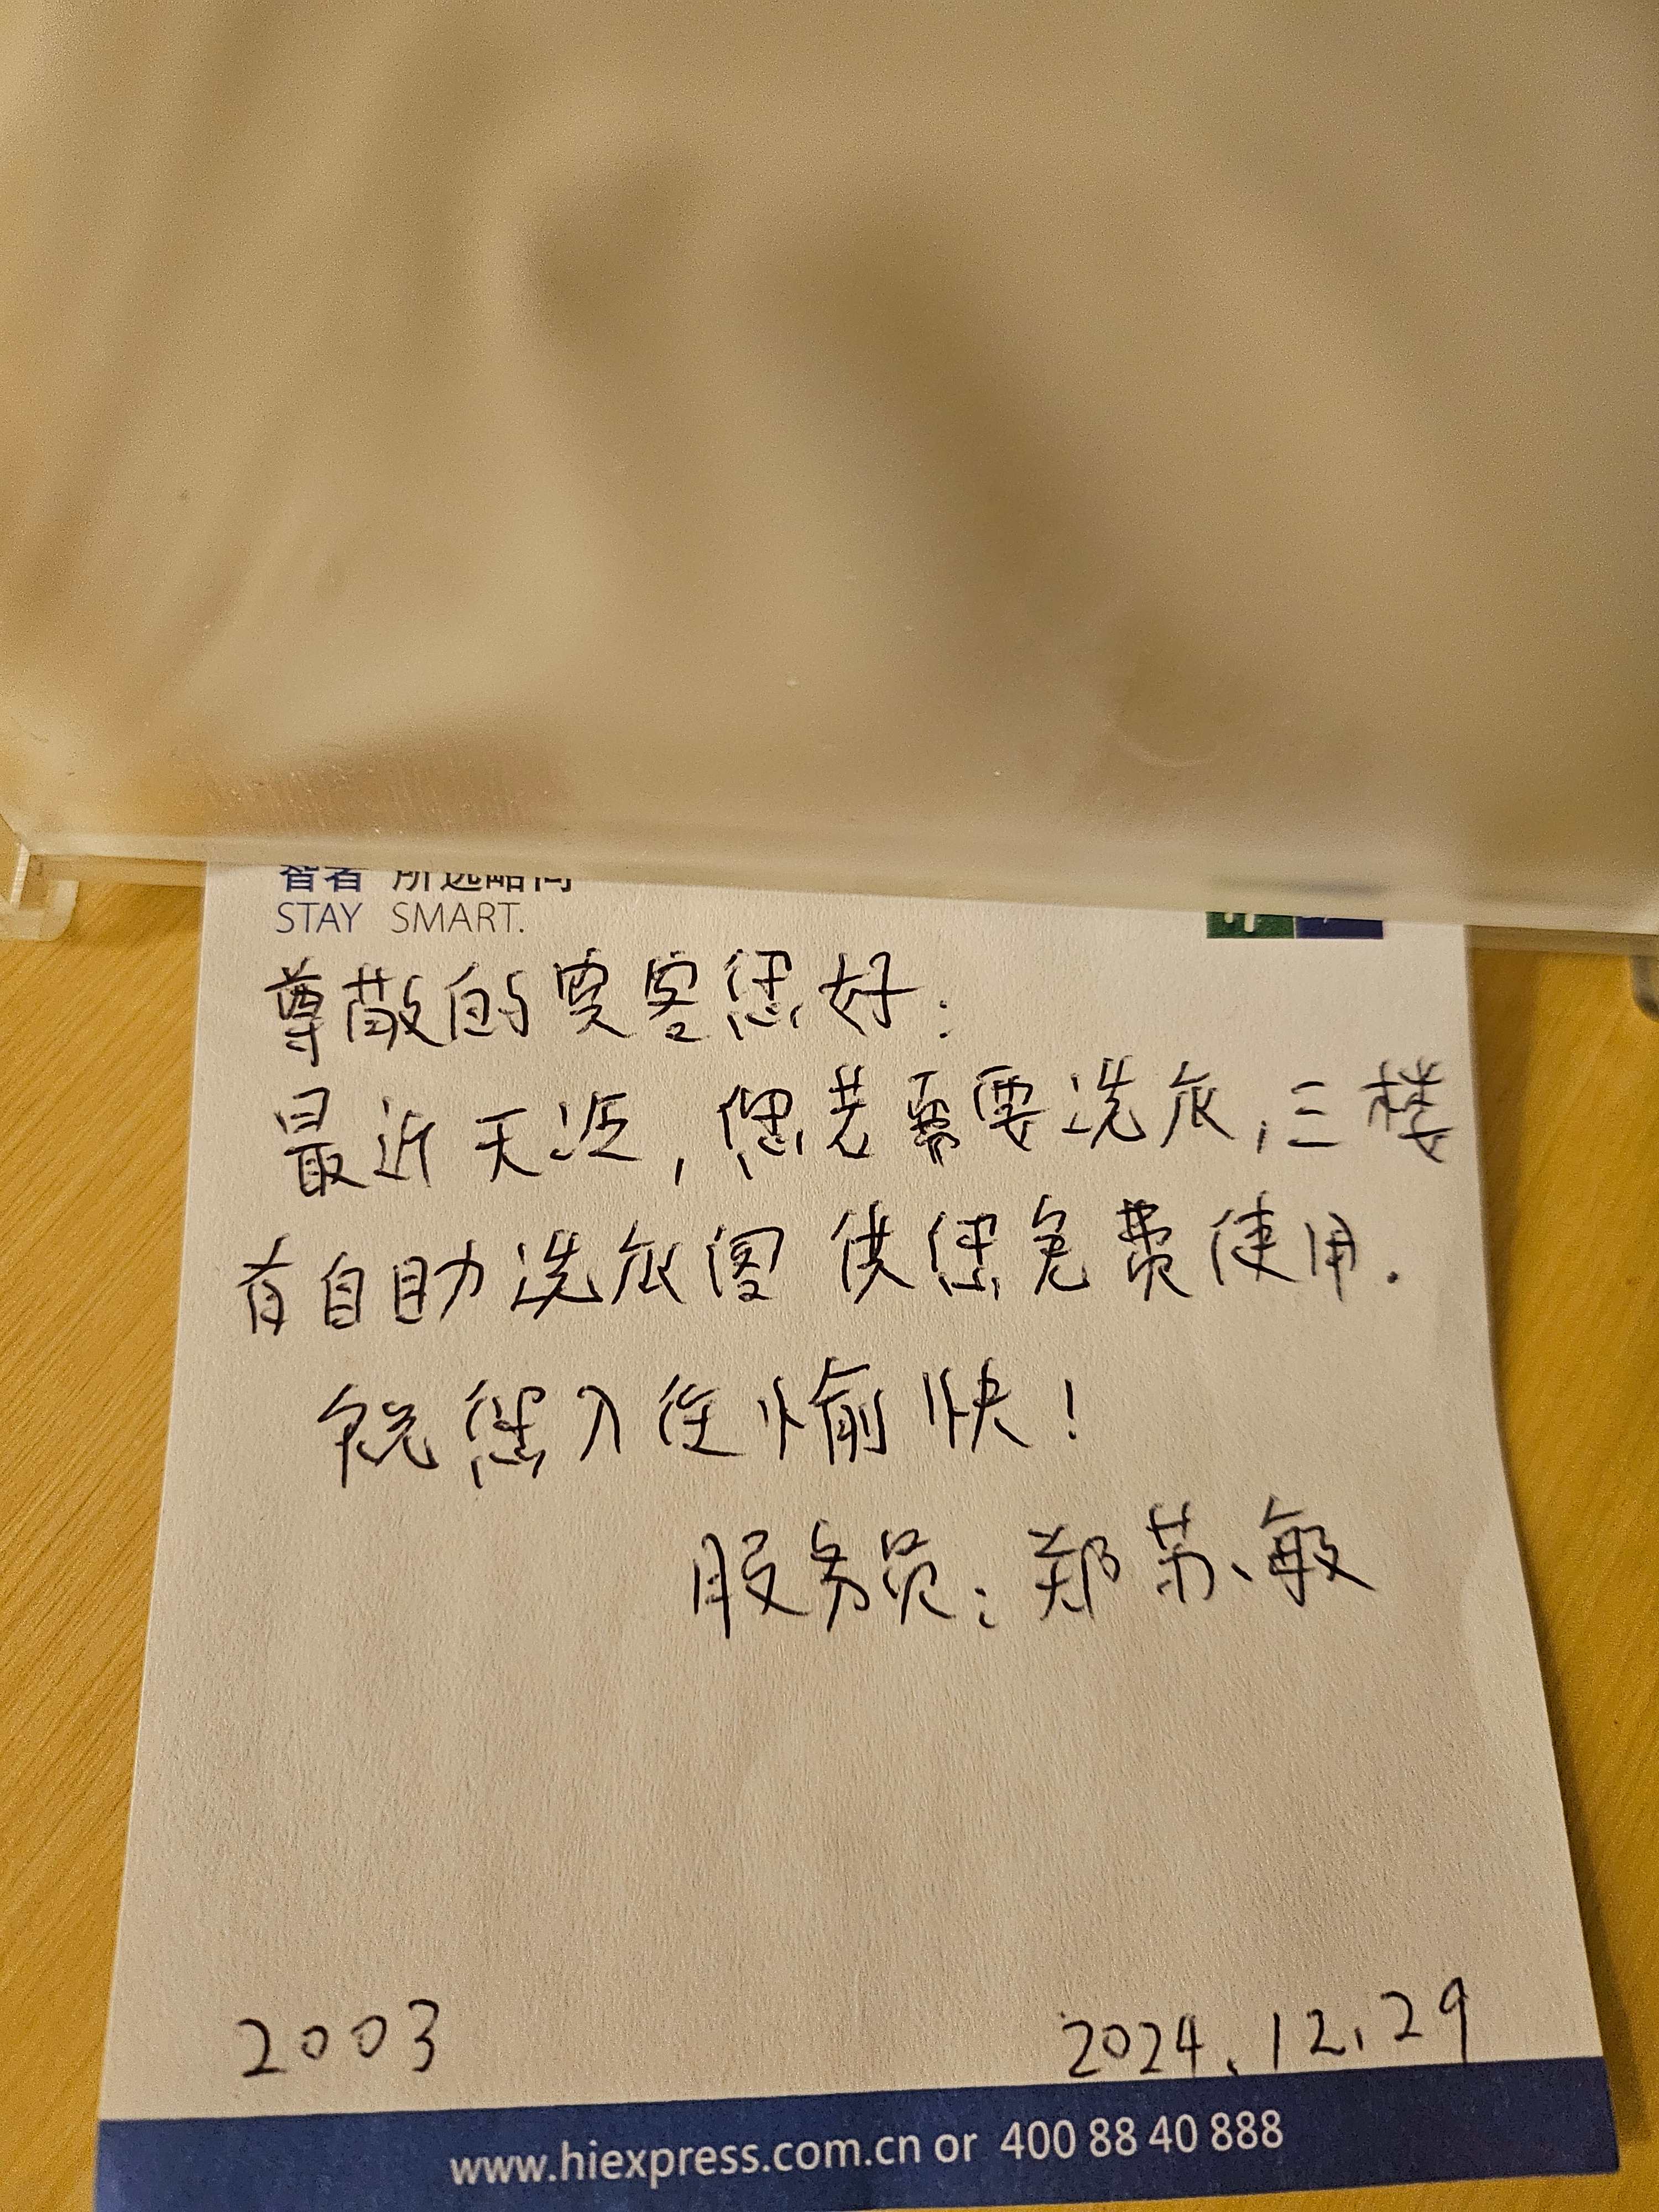 智者 所选略同
STAY SMART.
尊敬的宾客您好：
最近天冷，您若需要洗衣，三楼
有自助洗衣阁供您免费使用.
祝您入住愉快！
服务员：郑苏敏
2003
2024.12.29
www.hiexpress.com.cn or 400 88 40 888